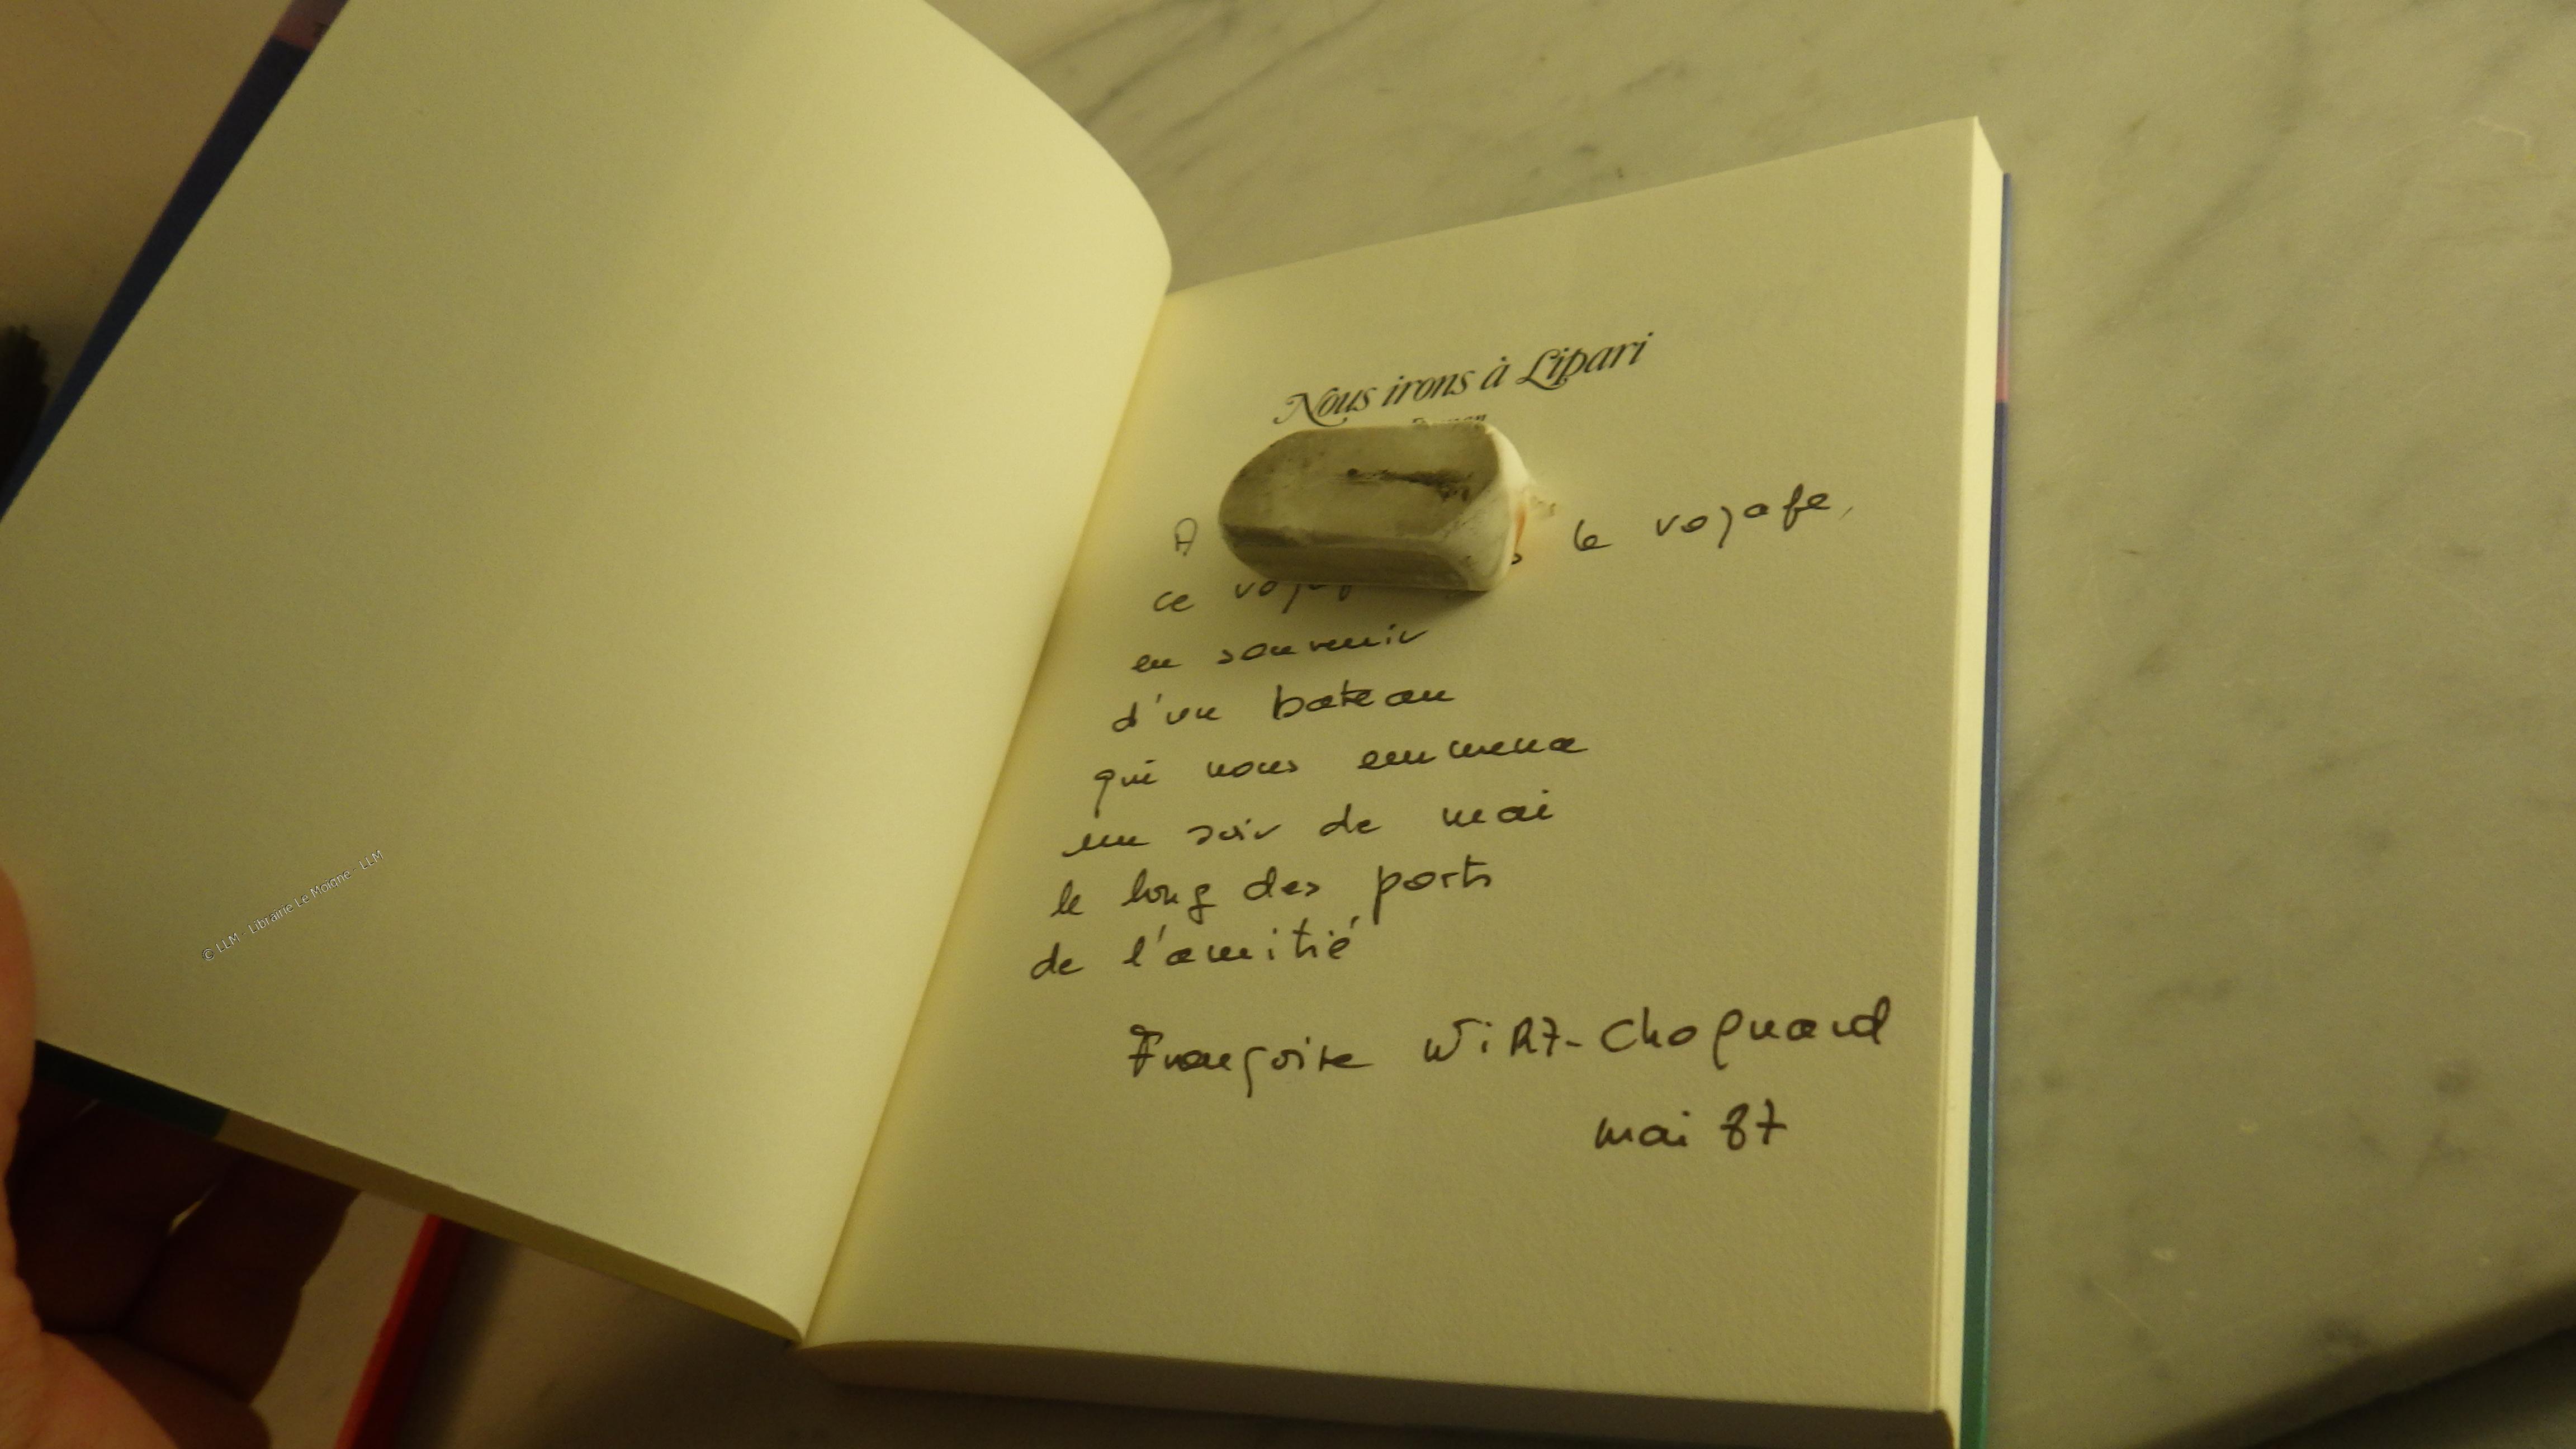 Nous irons à Lipari
A le voyage,
ce
en souvenir
d'un bateau
qui nous emmena
un soir de mai
le long des ports
de l'amitié
Françoise WiRZ-Choquard
mai 87
© LLM - Librairie Le Moigne - LLM